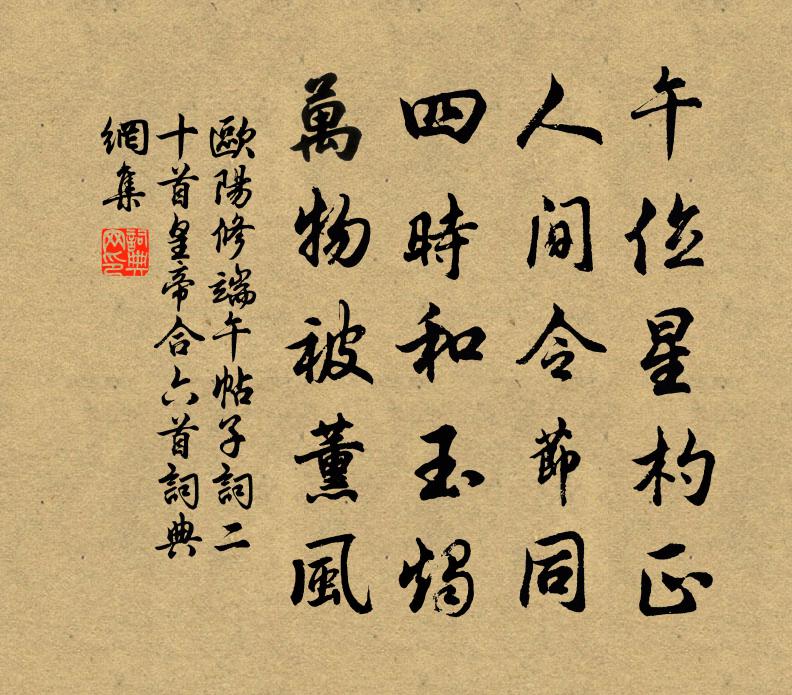 午位星杓正
人間令節同
四時和玉燭
萬物被薰風
歐陽修端午帖子詞二
十首皇帝合六首詞典
網集
詞典
網印